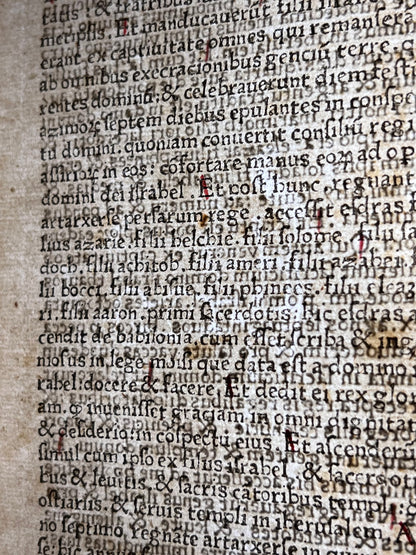 tatis : & fratribus
metipsis. Et manducauerut filii
erant ex captiuitate omnes, qui remanser
ab omnibus execracionibus genciū terre. q
rentes dominū. & celebrauerunt diem festi
azimoꝝ septem diebus epulantes in conspe
tu domini. quoniam conuertit consiliū regi
assirioꝝ in eos: cōfortare manus eoꝝ ad op
domini dei israhel. Et post hunc. regnant
artarxerse persarum rege. accessit esdras
lius azarie. filii helchie. filii solome. filii sa
doch. filii achitob. filii ameri. filii azahel. fi
lii bocci. filii abisue. filii phinees. filii eleaza
ri. filii aaron. primi sacerdotis: hic esdras a
cendit de babilonia. cum esset scriba & in
niosus in lege moisi que data est a domino
rahel: docere & facere. Et dedit ei rex glo
am. ꝙ inuenisset graciam in omni dignitat
& desideriо: in cōspectu eius. Et ascenderū
simul cum ipso ex filiis israhel & sacerdoti
bus & leuitis. & sacris cantoribus templi. &
ostiariis. & seruis templi in iherusalem. A
no septimo. regnāte artarxerse in
se: hic annus